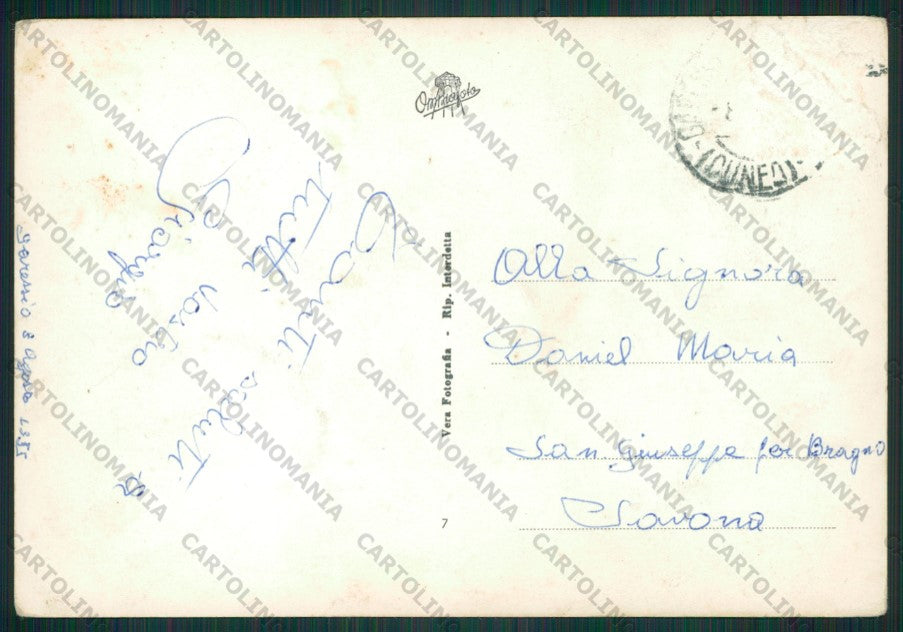 Omniafoto
(CUNEO)
Garessio 8 Agosto 1955
Tanti saluti a
tutti vostro
Giorgio
Vera Fotografia - Rip. Interdetta
Alla Signora
Daniel Maria
San Giuseppe per Bragno
Savona
7
CARTOLINOMANIA